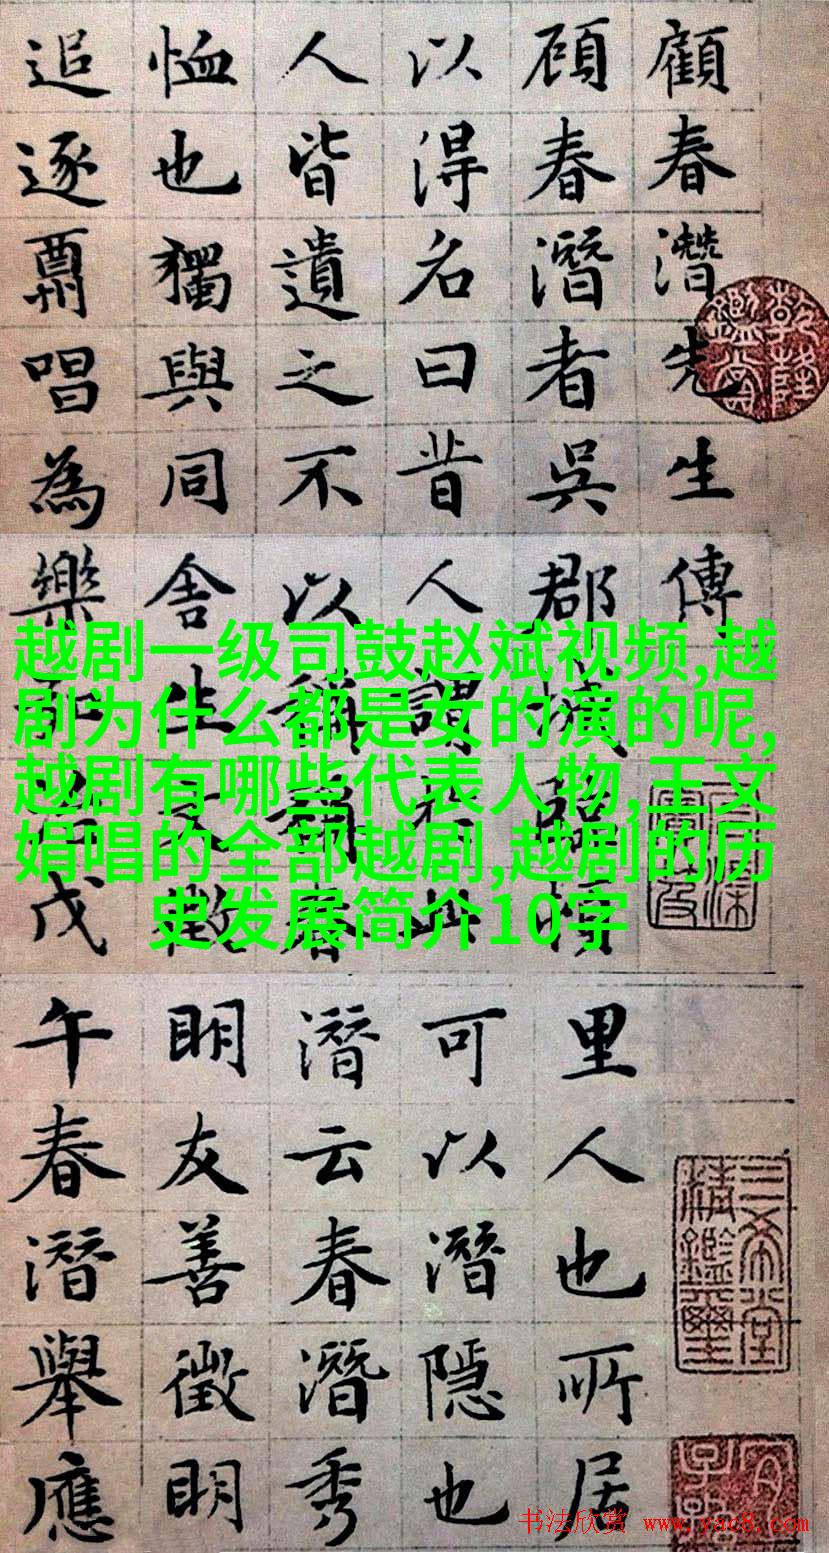 顧春潛先生傳
頋春潛者吳郡城臨里人也所居
以得名曰昔人謂此可以潛隱也
人皆遺之不以稱春潛云春潛秀
恤也獨與同舍生文徵明友善徵明
追逐唱為樂戊午春潛舉應
乾隆鑑賞
三希堂精鑑璽
越剧一级司鼓赵斌视频,越
剧为什么都是女的演的呢,
越剧有哪些代表人物,王文
娟唱的全部越剧,越剧的历
史发展简介10字
书法欣赏 www.yac8.com